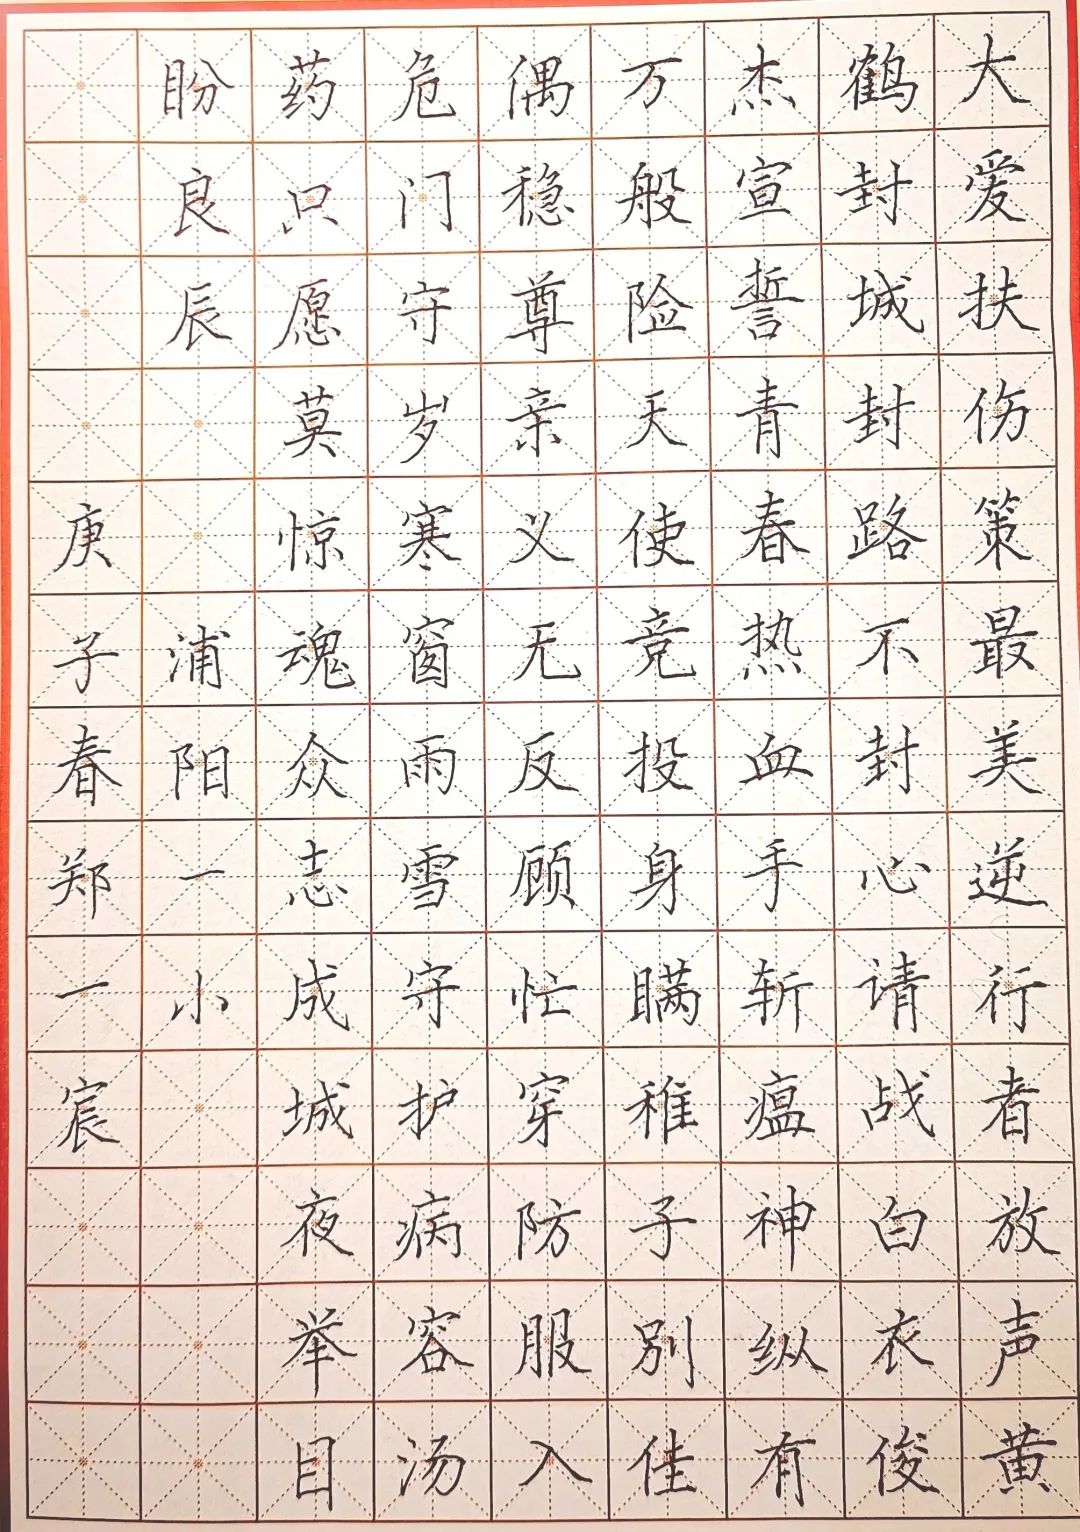 大爱扶伤策最美逆行者放声黄
鹤封城封路不封心请战白衣俊
杰宣誓青春热血手斩瘟神纵有
万般险天使竞投身瞒稚子别佳
偶稳尊亲义无反顾忙穿防服入
危门守岁寒窗雨雪守护病容汤
药只愿莫惊魂众志成城夜举目
盼良辰浦阳一小
庚子春郑一宸